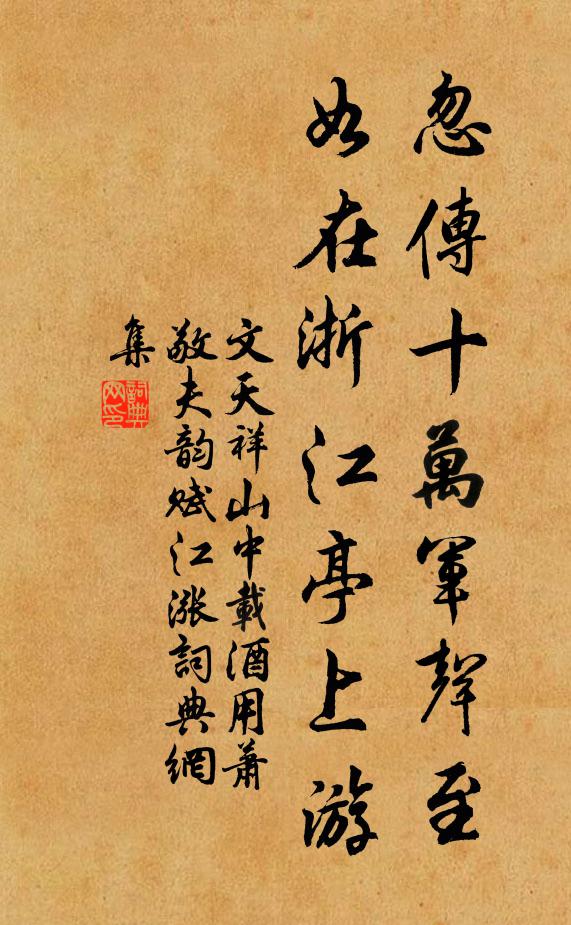 忽傳十萬軍聲至
如在浙江亭上游
文天祥山中載酒用蕭
敬夫韵賦江漲詞典網
集
詞典
网印